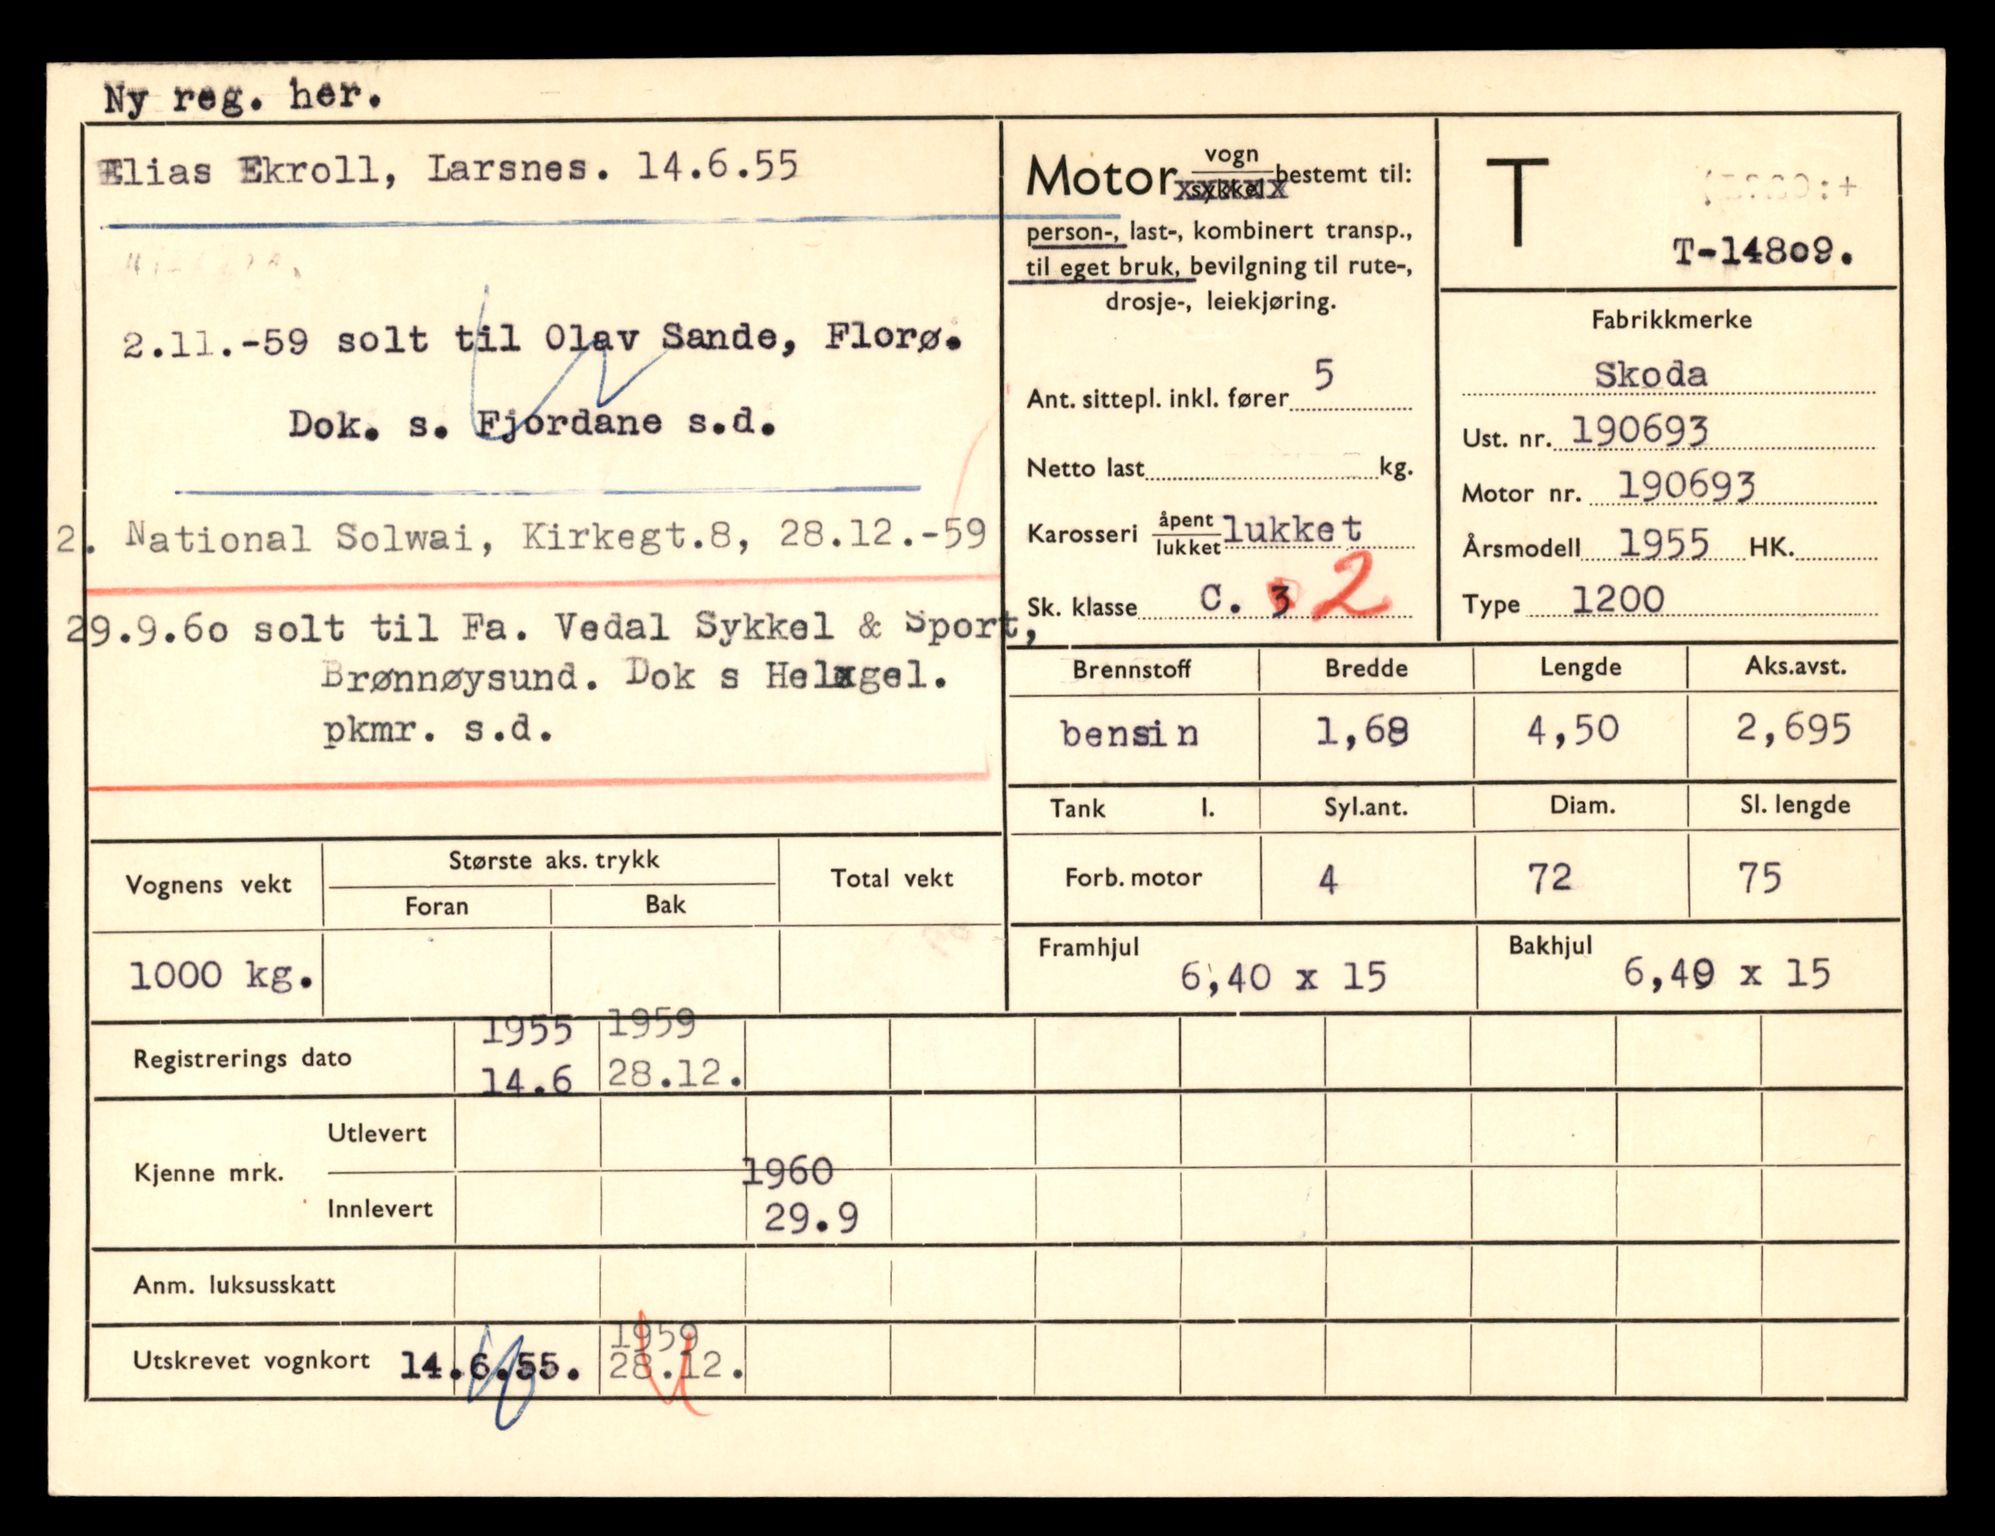 Ny reg. her.
Elias Ekroll, Larsnes. 14.6.55
2.11.-59 solt til Olav Sande, Florø.
Dok. s. Fjordane s.d.
2. National Solwai, Kirkegt.8, 28.12.-59
29.9.60 solt til Fa. Vedal Sykkel & Sport,
Brønnøysund. Dok s Helgel.
pkmr. s.d.
Motor vogn/sykkel bestemt til:
person-, last-, kombinert transp.,
til eget bruk, bevilgning til rute-,
drosje-, leiekjøring.
Ant. sittepl. inkl. fører 5
Netto last kg.
Karosseri åpent/lukket lukket
Sk. klasse C. 3 2
T
T-14809.
Fabrikkmerke
Skoda
Ust. nr. 190693
Motor nr. 190693
Årsmodell 1955 HK.
Type 1200
Brennstoff Bredde Lengde Aks.avst.
bensin 1,68 4,50 2,695
Tank l. Syl.ant. Diam. Sl. lengde
Forb. motor 4 72 75
Framhjul 6,40 x 15 Bakhjul 6,40 x 15
Vognens vekt Største aks. trykk Total vekt
Foran Bak
1000 kg.
1955 1959
Registrerings dato 14.6 28.12.
Utlevert
Kjenne mrk. 1960
Innlevert 29.9
Anm. luksusskatt
1959
Utskrevet vognkort 14.6.55. 28.12.